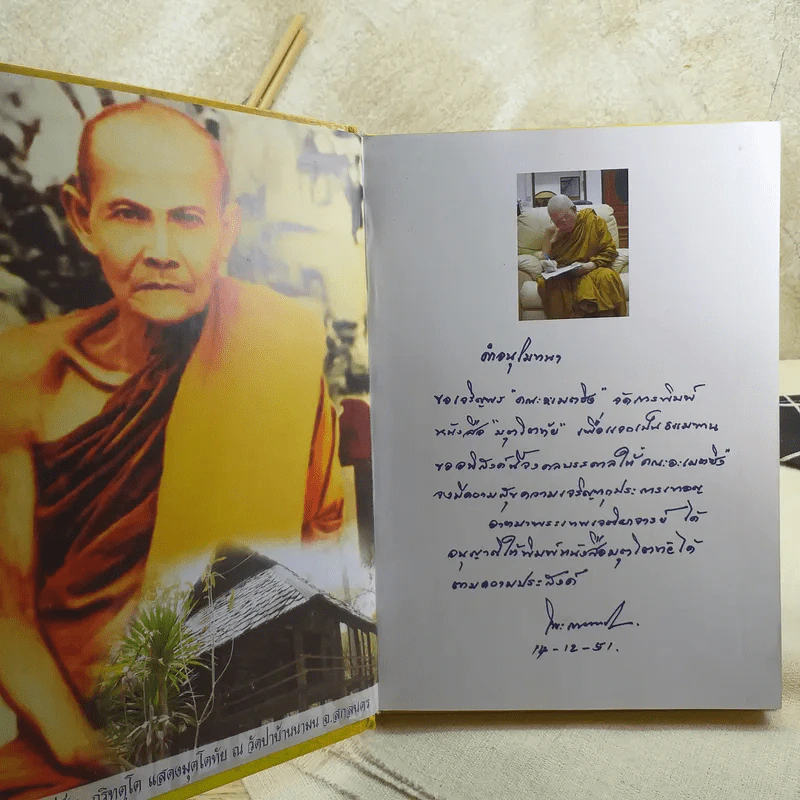 ภูริทตฺโต แสดงมุตโตทัย ณ วัดป่าบ้านนามน จ.สกลนคร
คำอนุโมทนา
ขอเจริญพร "คณะอเมตซิ่ง" จัดการพิมพ์
หนังสือ "มุตโตทัย" เพื่อแจกเป็นธรรมทาน
ขออานิสงค์นี้จงดลบรรดาลให้ "คณะอะเมตซิ่ง"
จงมีความสุขความเจริญทุกประการเทอญ
อาตมาพระเทพเจติยาจารย์ ได้
อนุญาติให้พิมพ์หนังสือมุตโตทัยได้
ตามความประสงค์
14-12-51.